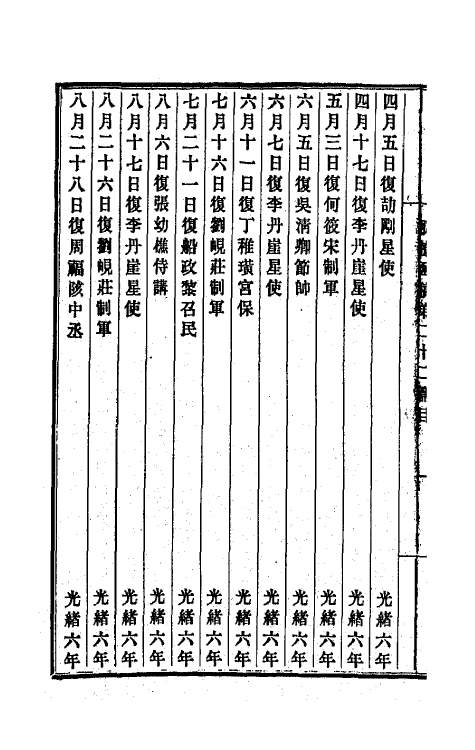 四月五日復劼剛星使 光緒六年
四月十七日復李丹崖星使 光緒六年
五月三日復何筱宋制軍 光緒六年
六月五日復吳清卿節帥 光緒六年
六月七日復李丹崖星使 光緒六年
六月十一日復丁稚璜宮保 光緒六年
七月十六日復劉峴莊制軍 光緒六年
七月二十一日復船政黎召民 光緒六年
八月六日復張幼樵侍講 光緒六年
八月十七日復李丹崖星使 光緒六年
八月二十六日復劉峴莊制軍 光緒六年
八月二十八日復周福陔中丞 光緒六年